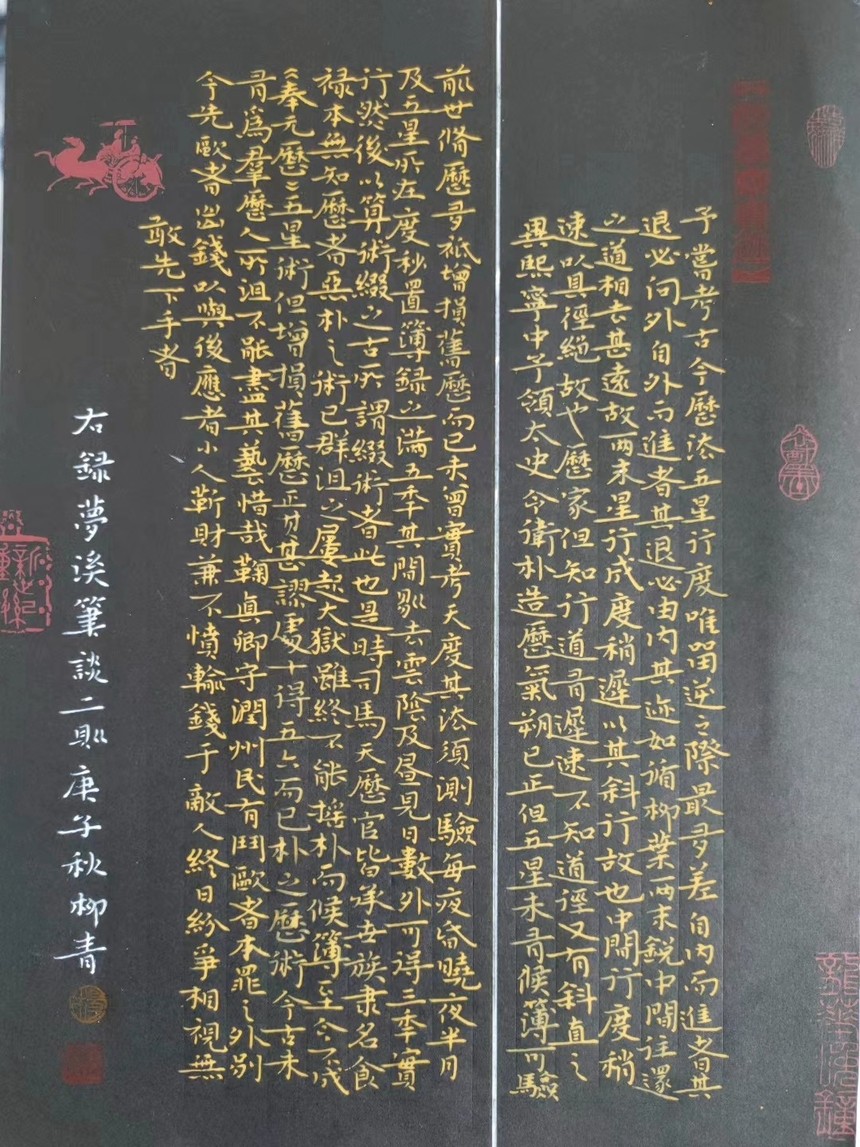 予嘗考古今曆法五星行度唯留逆之際最多差自內而進者其
退必向外自外而進者其退必由內其迹如循柳葉兩末銳中間往還
之道相去甚遠故兩末星行成度稍遲以其斜行故也中間行度稍
速以其徑絕故也曆家但知行道有遲速不知道徑又有斜直之
異熙寧中予領太史令衛朴造曆氣朔已正但五星未有候簿可驗
前世脩曆多祇增損舊曆而已未曾實考天度其法須測驗每夜昏曉夜半月
及五星所在度秒置簿錄之滿五年其間剔去雲陰及晝見日數外可得三年實
行然後以算術綴之古所謂綴術者此也是時司馬天曆官皆承世族隸名食
祿本無知曆者惡朴之術已群沮之屢起大獄雖終不能搖朴而候簿至今不成
奉元曆五星術但增損舊曆正其甚謬處十得五六而已朴之曆術今古未
有爲羣曆人所沮不能盡其藝惜哉鞠真卿守潤州民有鬥毆者本罪之外別
令先毆者出錢以與後應者小人靳財兼不憤輸錢于敵人終日紛爭相視無
敢先下手者
右録夢溪筆談二則庚子秋柳青